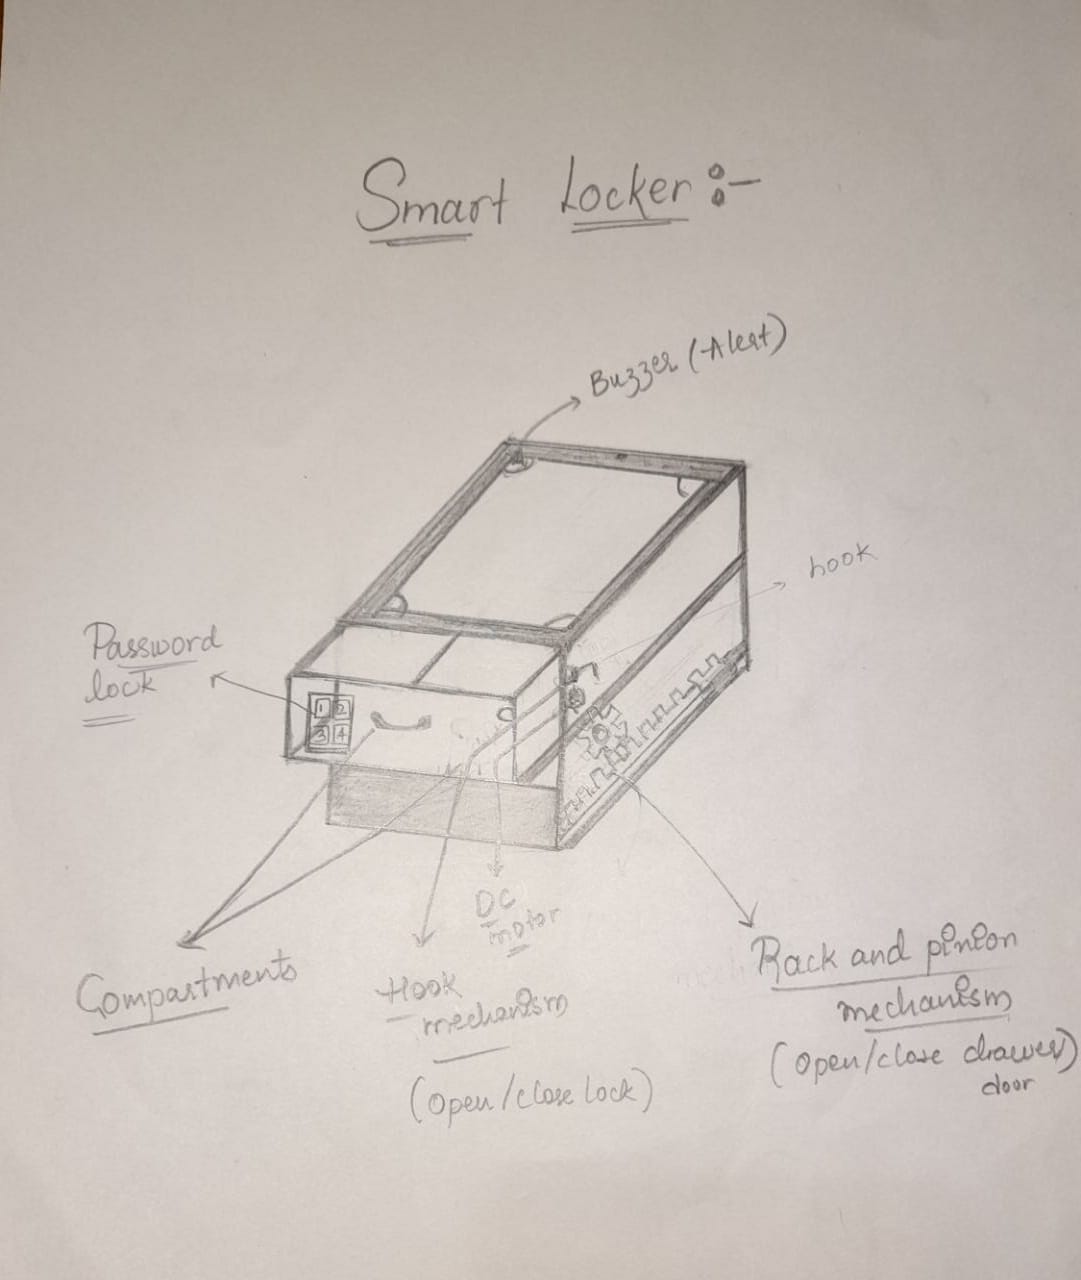 Smart Locker :-
Buzzer (Alert)
hook
Password
lock
1 2
3 4
DC
motor
Compartments
Hook
mechanism
(Open/close lock)
Rack and pinion
mechanism
(Open/close drawer)
door